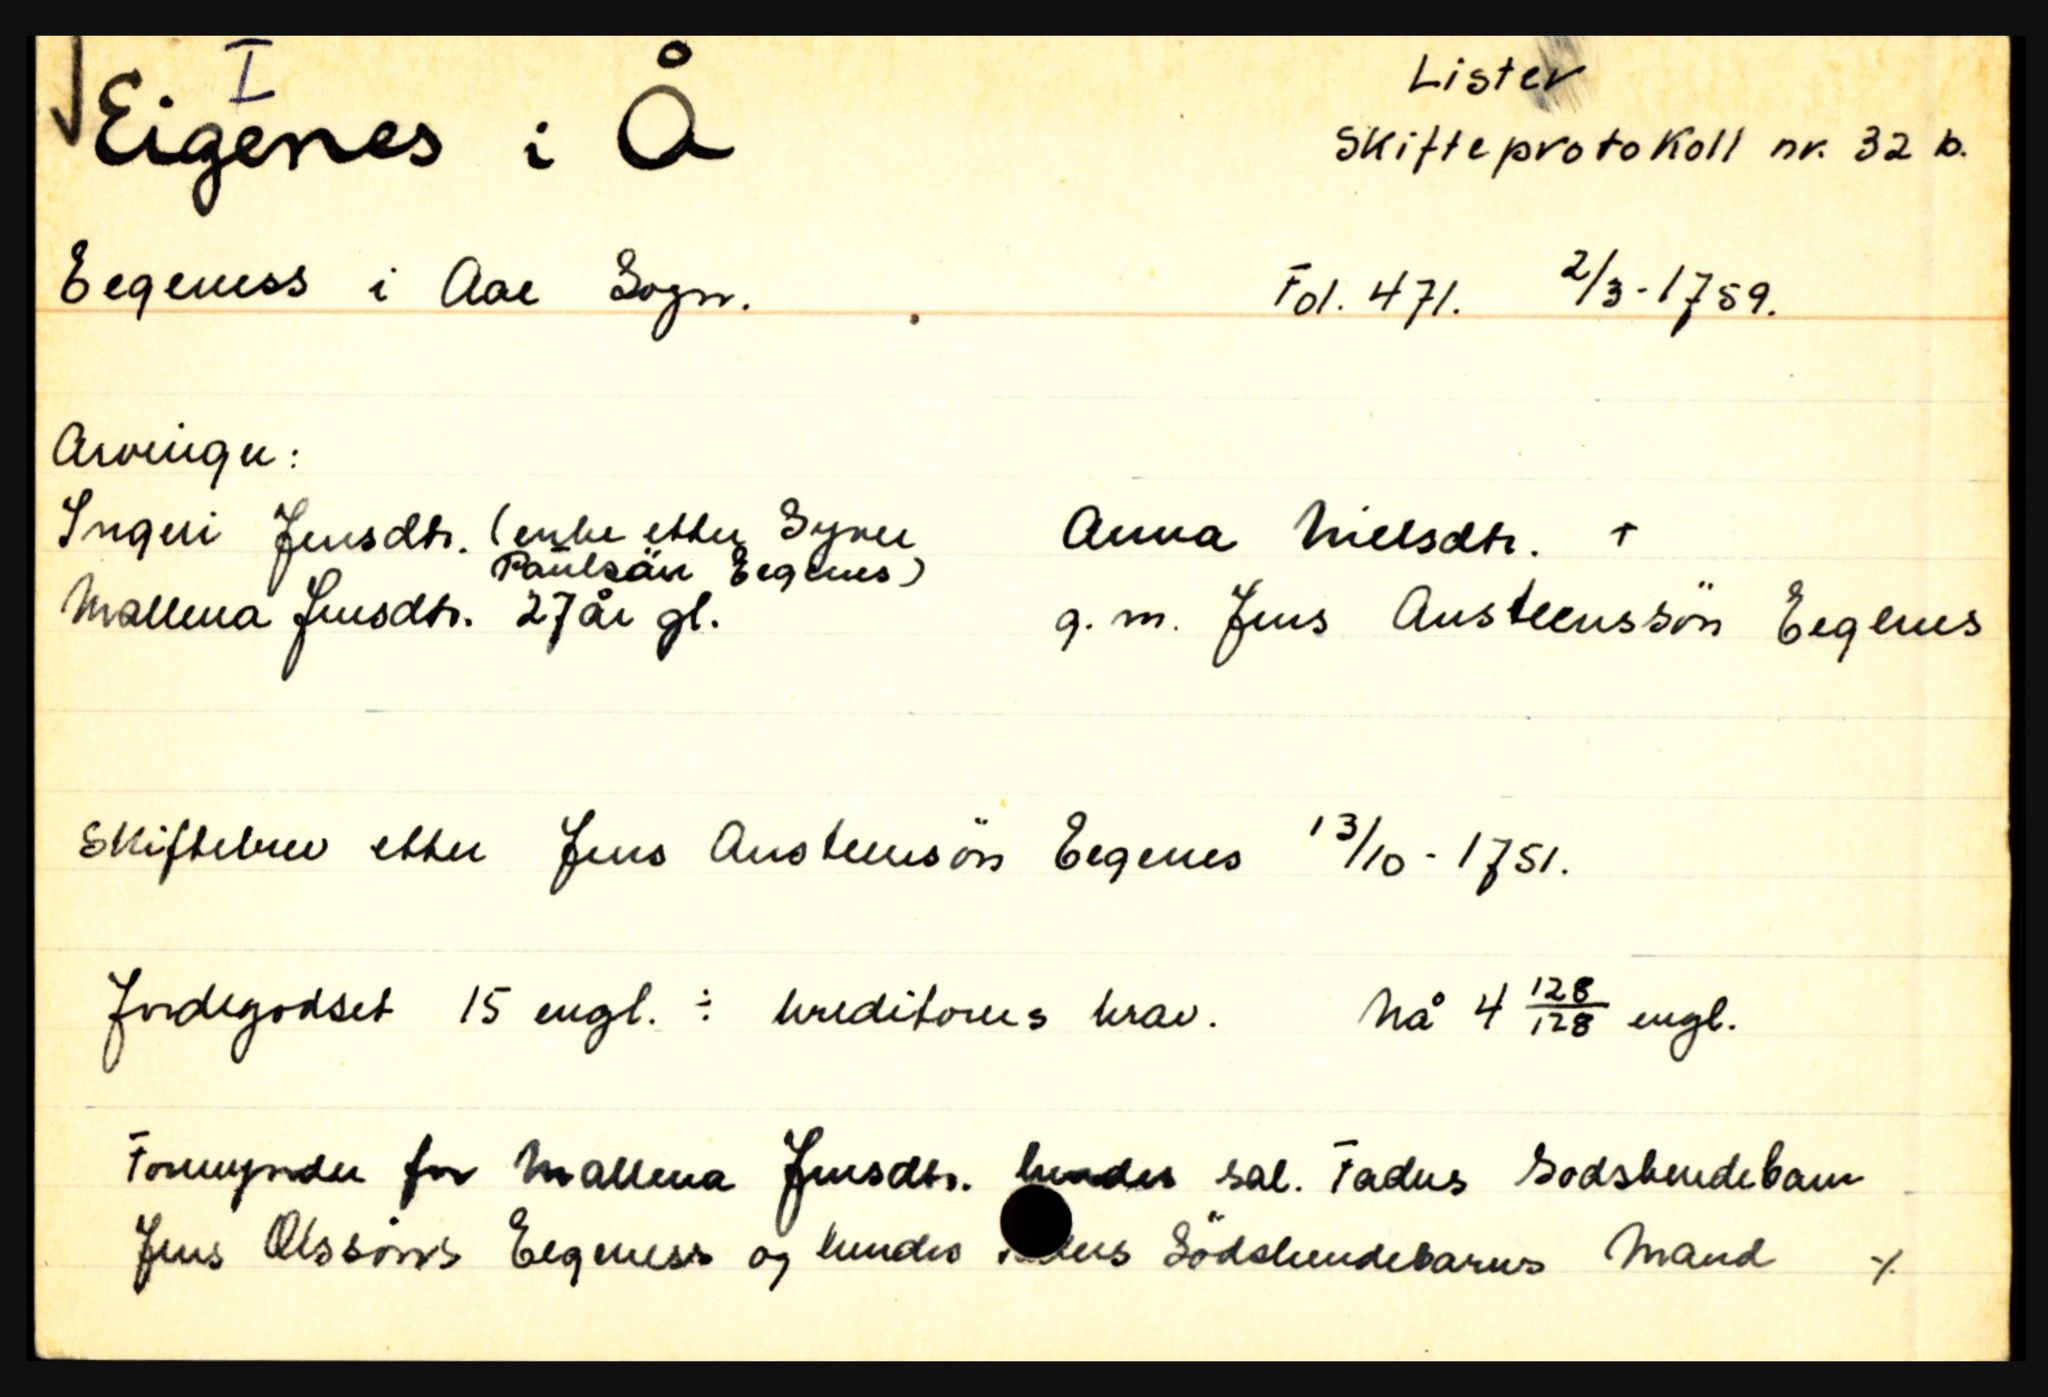 I
Eigenes i Å
Lister
Skifteprotokoll nr. 32 b.
Eegeness i Aae Sogn.
Fol. 471. 2/3-1759.
Arvinger:
Ingeri Jensdtr. (enke etter Syver
Paulsön Eegenes)
Mallena Jensdtr. 27 år gl.
Anna Nielsdtr. †
g. m. Jens Austeenssön Eegenes
Skiftebrev etter Jens Austeensön Eegenes 13/10-1751.
Jordegodset 15 engl. ÷ kreditorenes krav. Nå 4 128/128 engl.
Formynder for Mallena Jensdtr. hendes sal. Faders Sodskendebarn
Jens Olssöns Eegeness og hendes Södskendebarns Mand ⁒